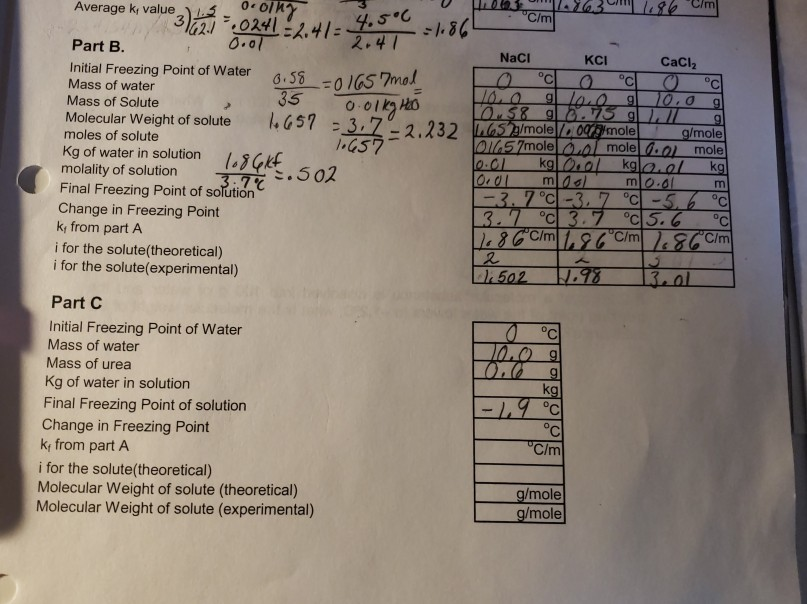 Average kf value 3 1.5 0.01kg 3 1.863 °C/m 1.86 °C/m
62.1 = .0241 = 2.41 = 4.5°C = 1.86 °C/m
0.01 2.41
Part B. NaCl KCl CaCl2
Initial Freezing Point of Water 0 °C 0 °C 0 °C
Mass of water 0.58 = 01657mol 10.0 g 10.0 g 10.0 g
Mass of Solute 35 0.01kg H2O 0.58 g 0.75 g 1.11 g
Molecular Weight of solute 1.657 = 3.7 = 2.232 g/mole g/mole g/mole
moles of solute 1.657 01657mole 0.01 mole 0.01 mole
Kg of water in solution 1.86kf = .502 0.01 kg 0.01 kg 0.01 kg
molality of solution 3.7°C 0.01 m m 0.01 m
Final Freezing Point of solution -3.7 °C -3.7 °C -5.6 °C
Change in Freezing Point 3.7 °C 3.7 °C 5.6 °C
kf from part A 1.86 °C/m 1.86 °C/m 1.86 °C/m
i for the solute(theoretical) 2 2 3
i for the solute(experimental) 1.502 1.98 3.01
Part C
Initial Freezing Point of Water 0 °C
Mass of water 10.0 g
Mass of urea 0.6 g
Kg of water in solution kg
Final Freezing Point of solution -1.9 °C
Change in Freezing Point °C
kf from part A °C/m
i for the solute(theoretical)
Molecular Weight of solute (theoretical) g/mole
Molecular Weight of solute (experimental) g/mole